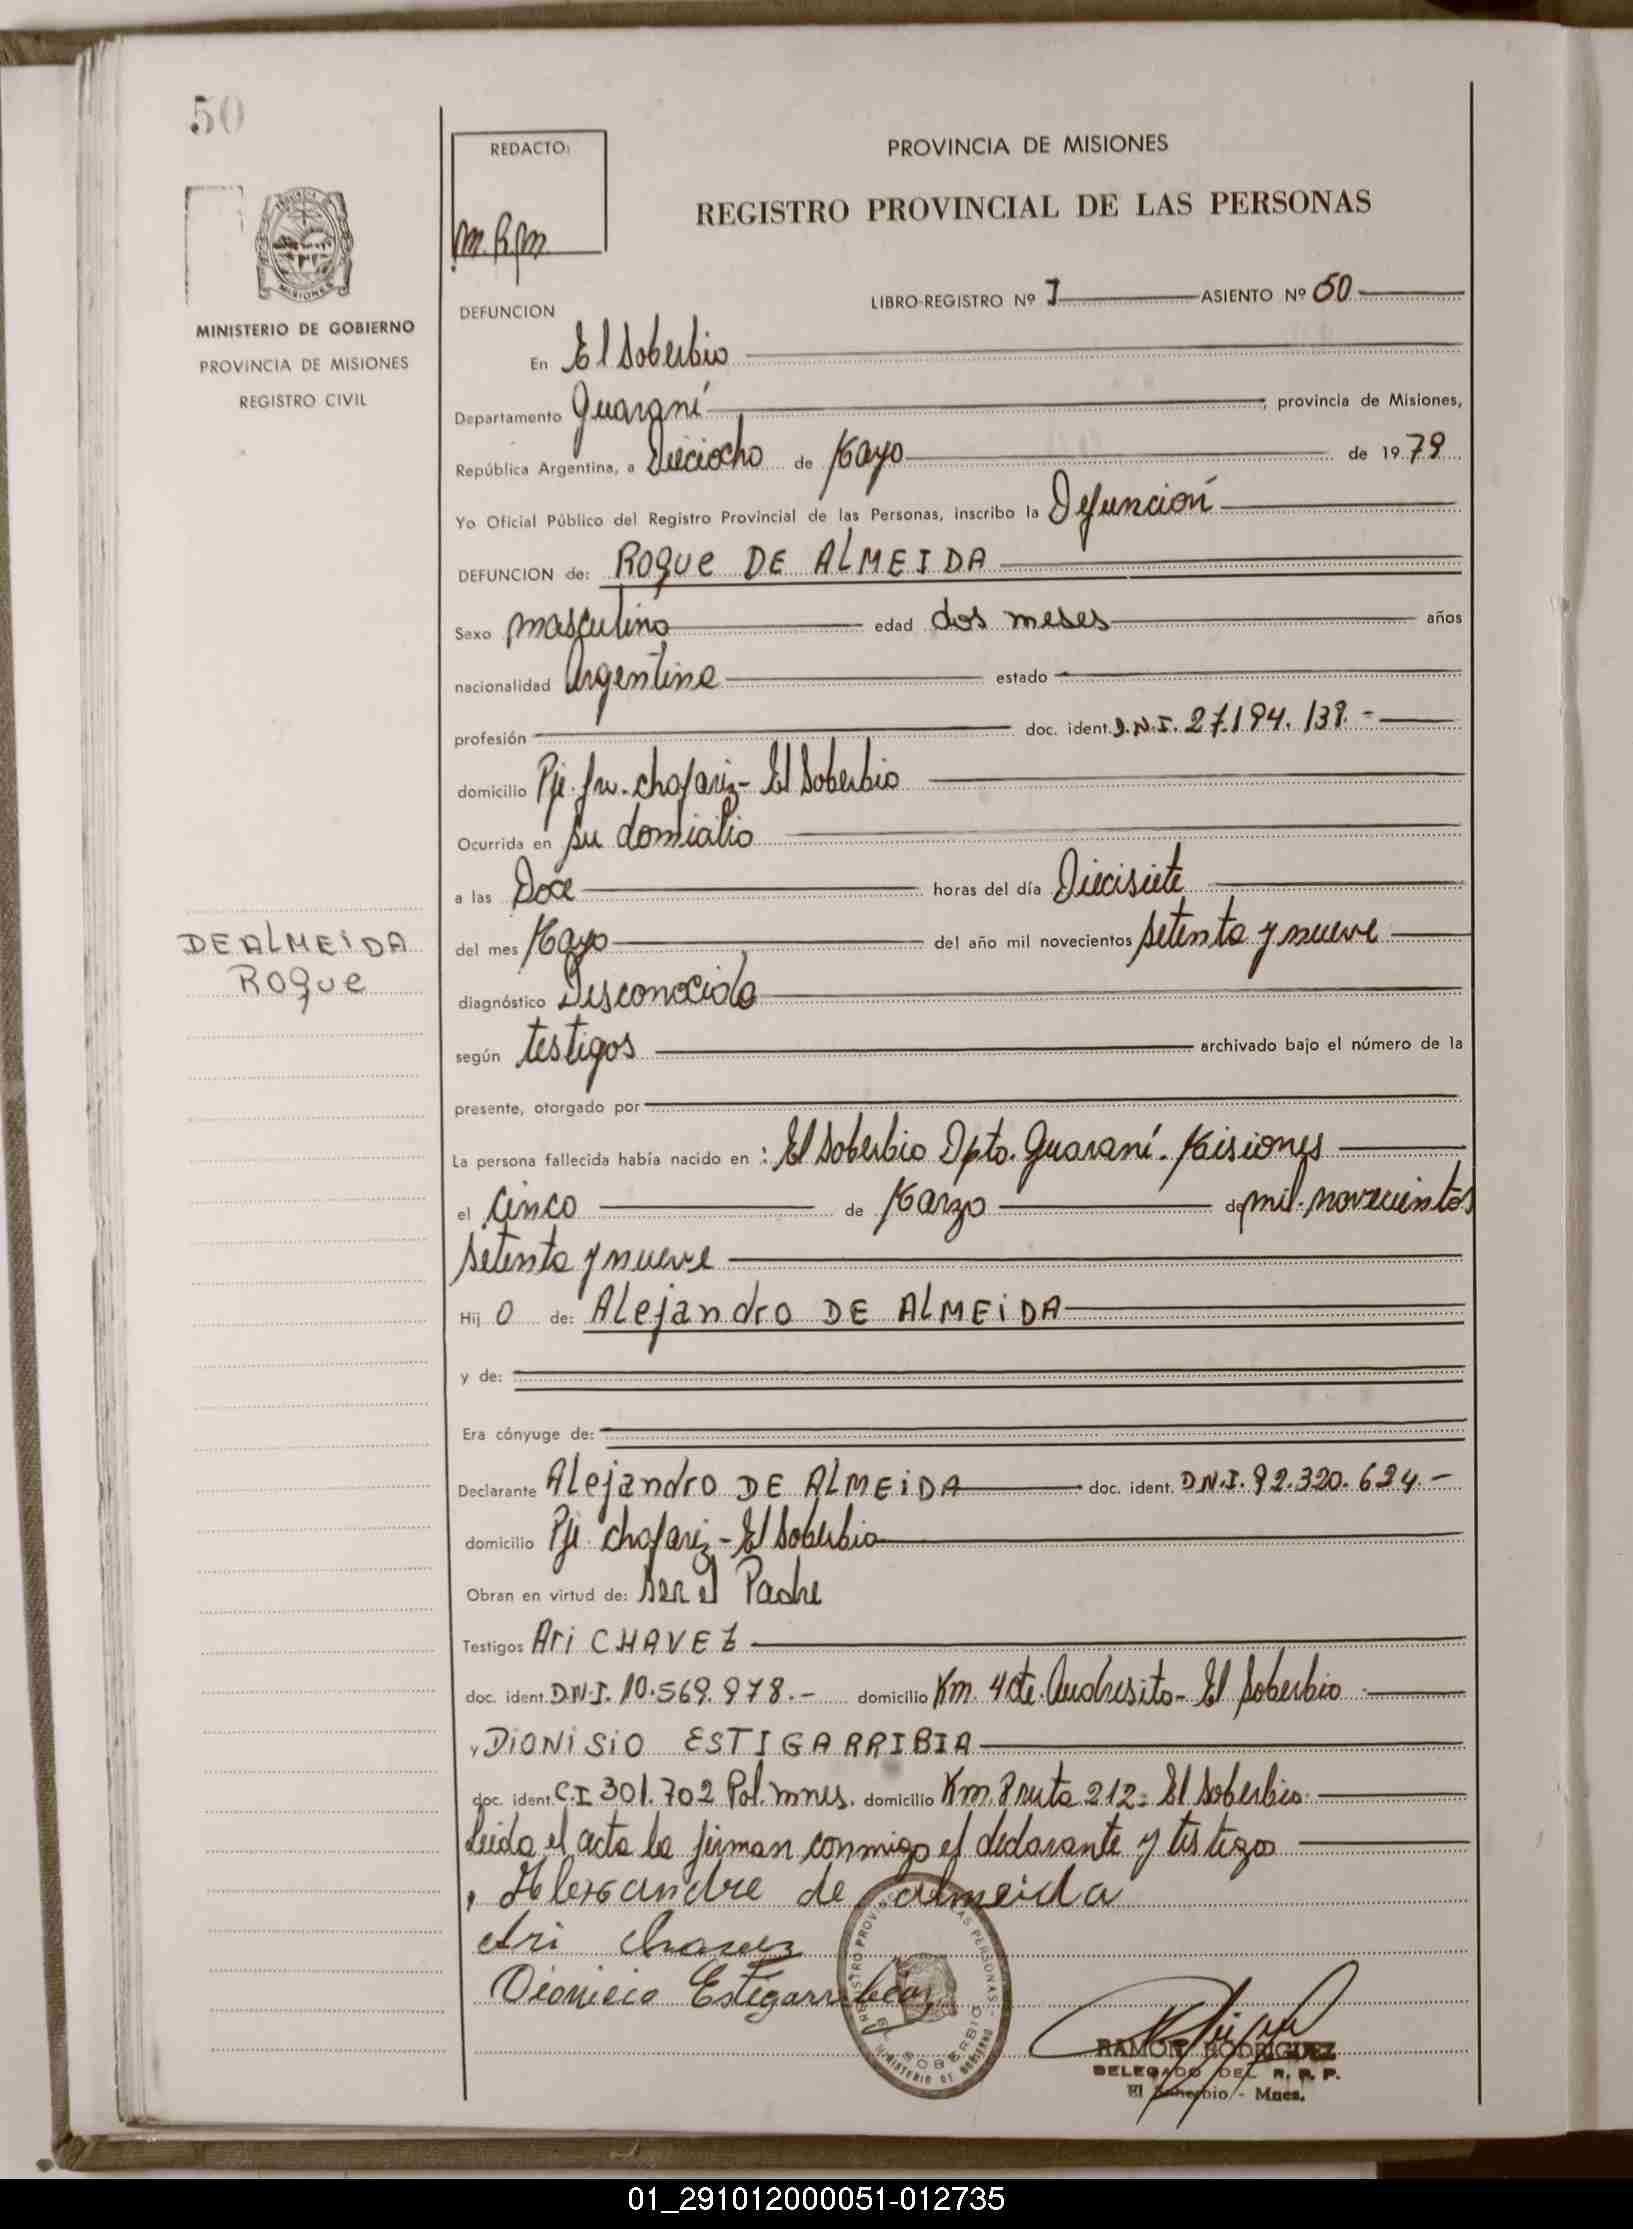 50
REDACTO:
M.R.M.
PROVINCIA DE MISIONES
REGISTRO PROVINCIAL DE LAS PERSONAS
MISIONES
MINISTERIO DE GOBIERNO
PROVINCIA DE MISIONES
REGISTRO CIVIL
DEFUNCION
LIBRO-REGISTRO Nº I ASIENTO Nº 50
En El Soberbio
Departamento Guaraní, provincia de Misiones,
República Argentina, a Dieciocho de Mayo de 1979
Yo Oficial Público del Registro Provincial de las Personas, inscribo la Defunción
DEFUNCION de: Roque DE ALMEIDA
Sexo masculino edad dos meses años
nacionalidad Argentina estado
profesión doc. ident. D.N.I. 27.194.138.-
domicilio Pje. chafariz- El Soberbio
Ocurrida en su domicilio
a las Doce horas del día Diecisiete
del mes Mayo del año mil novecientos setenta y nueve
DE ALMEIDA
Roque
diagnóstico Desconocido
según testigos archivado bajo el número de la
presente, otorgado por
La persona fallecida había nacido en : El Soberbio Dpto. Guaraní. Misiones
el Cinco de Marzo de mil novecientos
setenta y nueve
Hij o de: Alejandro DE ALMEIDA
y de:
Era cónyuge de:
Declarante Alejandro DE ALMEIDA doc. ident. D.N.I. 92.320.624.-
domicilio Pje chafariz - El Soberbio
Obran en virtud de: Ser el Padre
Testigos Ari CHAVEZ
doc. ident. D.N.I. 10.569.978.- domicilio Km. 4 cte. Andresito- El Soberbio
y DIONISIO ESTIGARRIBIA
doc. ident. C.I 301.702 Pol. mnes. domicilio Km. 8 ruta 212- El Soberbio
Leida el acta la firman conmigo el declarante y testigos
Alexsandre de almeida
Ari Chavez
Dionicio Estigarribia
REGISTRO PROVINCIAL DE LAS PERSONAS
EL SOBERBIO
MINISTERIO DE GOBIERNO
RAMON RODRIGUEZ
DELEGADO DEL R. P. P.
El Soberbio - Mnes.
01_291012000051-012735